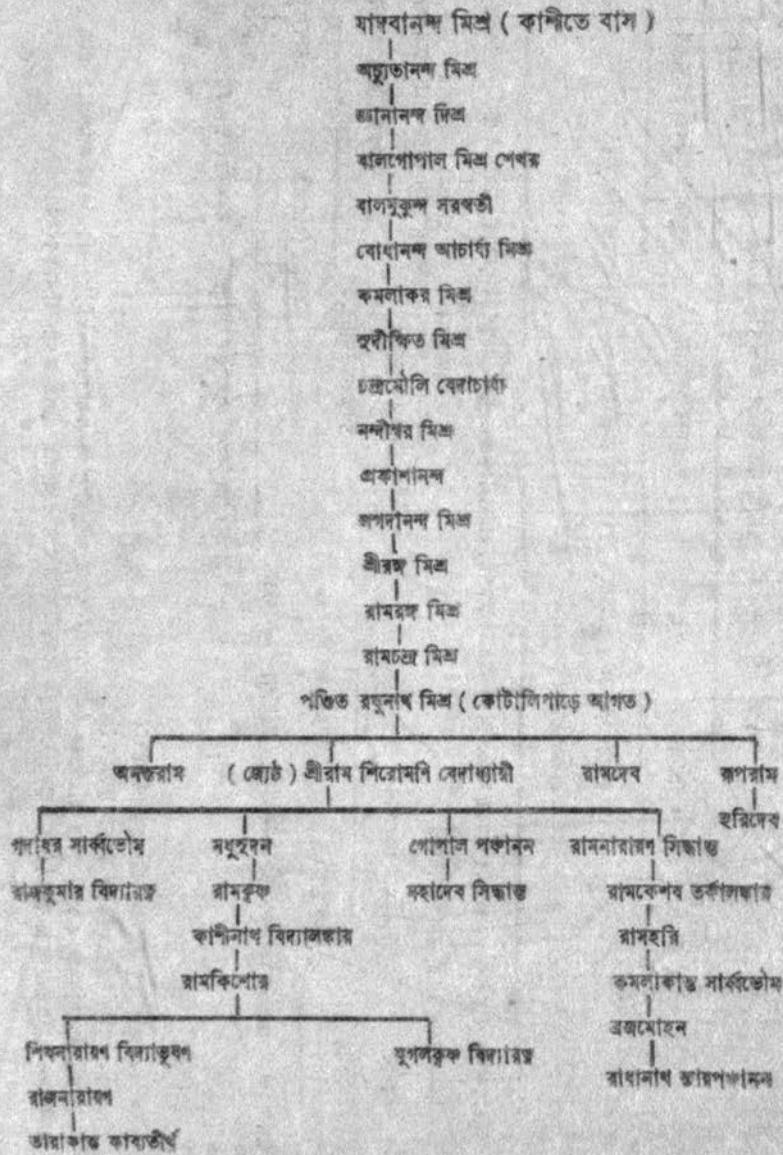 যাদবানন্দ মিশ্র ( কাশীতে বাস )
অচ্যুতানন্দ মিশ্র
জ্ঞানানন্দ মিশ্র
বালগোপাল মিশ্র শেখর
বালমুকুন্দ সরস্বতী
বোধানন্দ আচার্য্য মিশ্র
কমলাকর মিশ্র
সুদীক্ষিত মিশ্র
চন্দ্রমৌলি বেদাচার্য্য
নন্দীশ্বর মিশ্র
প্রকাশানন্দ
জগদানন্দ মিশ্র
শ্রীরঙ্গ মিশ্র
রামরঙ্গ মিশ্র
রামচন্দ্র মিশ্র
পণ্ডিত রঘুনাথ মিশ্র ( কোটালিপাড়ে আগত )
অনন্তরাম ( জ্যেষ্ঠ ) শ্রীরাম শিরোমণি বেদাধ্যায়ী রামদেব রূপরাম
হরিদেব
গদাধর সার্ব্বভৌম মধুসূদন গোপাল পঞ্চানন রামনারায়ণ সিদ্ধান্ত
রাজকুমার বিদ্যারত্ন রামকৃষ্ণ মহাদেব সিদ্ধান্ত রামকেশব তর্কালঙ্কার
কাশীনাথ বিদ্যালঙ্কার রামহরি
রামকিশোর কমলাকান্ত সার্ব্বভৌম
ব্রজমোহন
শিবনারায়ণ বিদ্যাভূষণ যুগলকৃষ্ণ বিদ্যারত্ন
রাধানাথ ন্যায়পঞ্চানন
রাজনারায়ণ
তারাকান্ত কাব্যতীর্থ